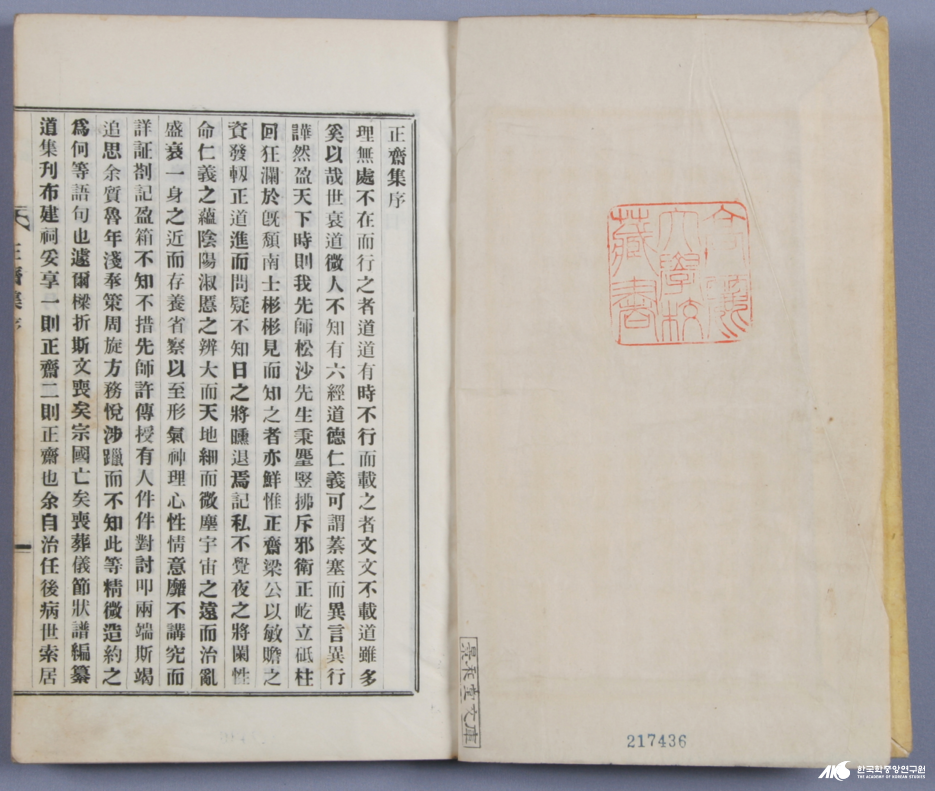 正齋集序
理無處不在而行之者道道有時不行而載之者文文不載道雖多
奚以哉世衰道微人不知有六經道德仁義可謂蓁塞而異言異行
譁然盈天下時則我先師松沙先生秉壄竪拂斥邪衛正屹立砥柱
回狂瀾於旣頹南士彬彬見而知之者亦鮮惟正齋梁公以敏贍之
資發軔正道進而問疑不知日之將曛退焉記私不覺夜之將闌性
命仁義之蘊陰陽淑慝之辨大而天地細而微塵宇宙之遠而治亂
盛衰一身之近而存養省察以至形氣神理心性情意靡不講究而
詳証劄記盈箱不知不措先師許傳授有人件件對討叩兩端斯竭
追思余質魯年淺奉策周旋方務悅涉躐而不知此等精微造約之
爲何等語句也遽爾樑折斯文喪矣宗國亡矣喪葬儀節狀譜編纂
道集刋布建祠妥享一則正齋二則正齋也余自治任後病世索居
正齋集序
大學校
藏書
文庫
217436
한국학중앙연구원
THE ACADEMY OF KOREAN STUDIES